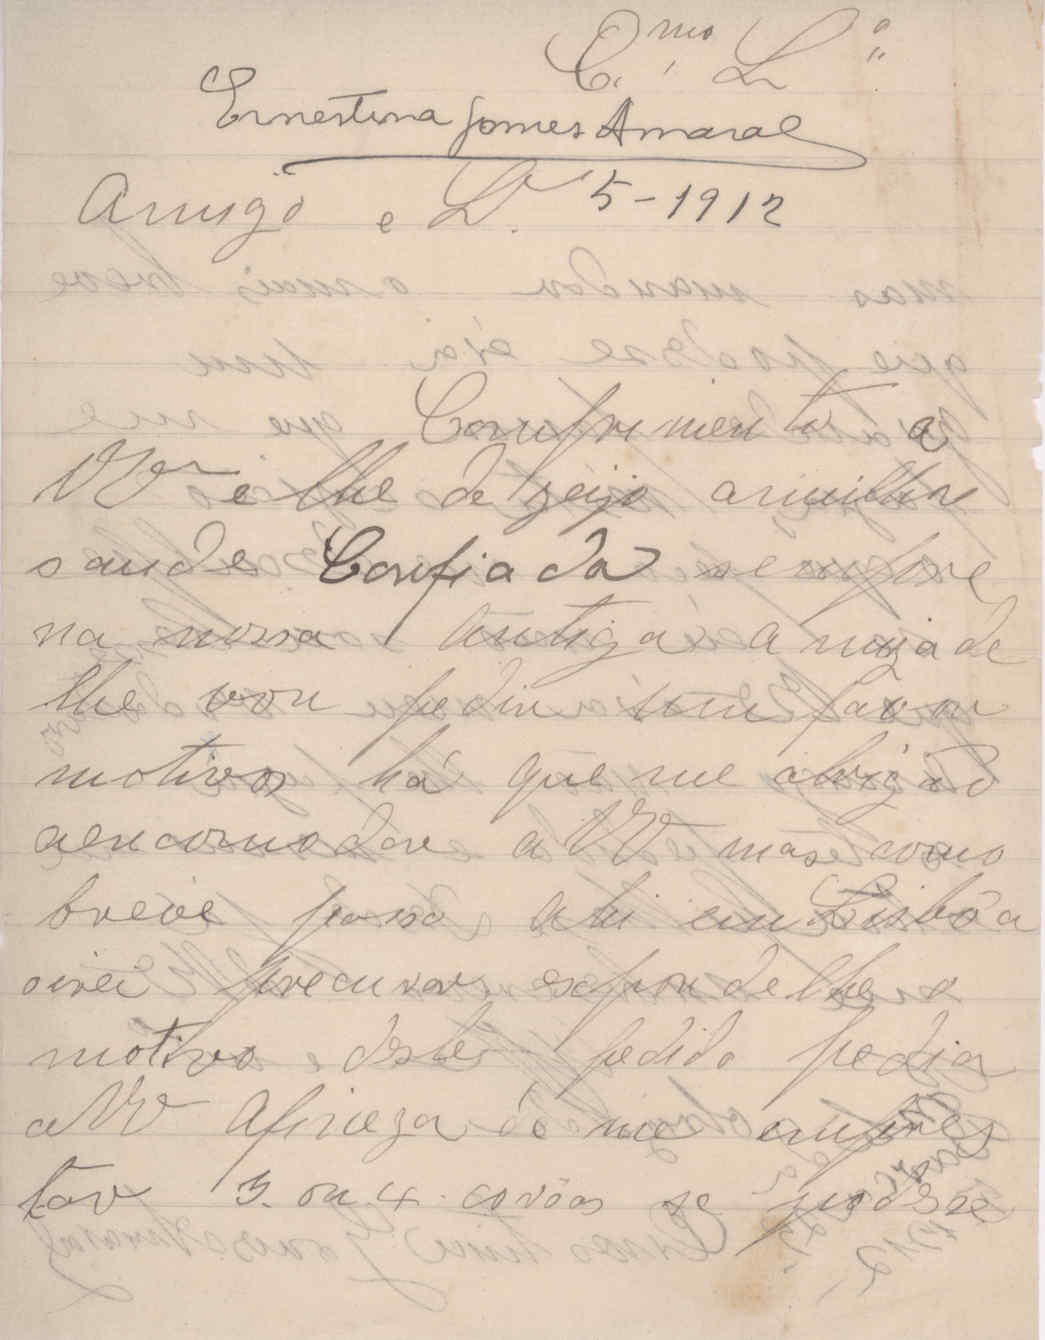 Emo Sr
Ernestina Gomes Amaral
Amigo e Sr. 5-1912
Comprimento a
VExa e lhe dezeijo a milhor
saude Confiada sempre
na nossa antiga amizade
lhe vou pedir um favor
motivos há que me obrigão
a encomodare a VExa mas como
breve passo ahi em Lisbôa
oirei precurar espondelhe o
motivo deste pedido pedia
a VExa afineza de me empres
tar 3. ou 4. corôas se podese